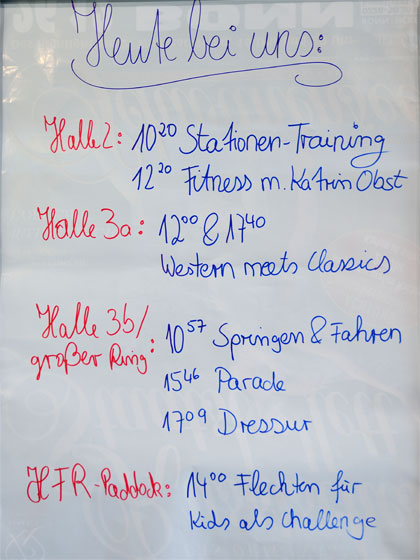 Heute bei uns:
Halle 2: 10²⁰ Stationen-Training
12²⁰ Fitness m. Katrin Obst
Halle 3a: 12⁰⁰ & 17⁴⁰
Western meets Classics
Halle 3b/
großer Ring: 10⁵⁷ Springen & Fahren
15⁴⁶ Parade
17⁰⁹ Dressur
HFR-Paddock: 14⁰⁰ Flechten für
Kids als Challenge